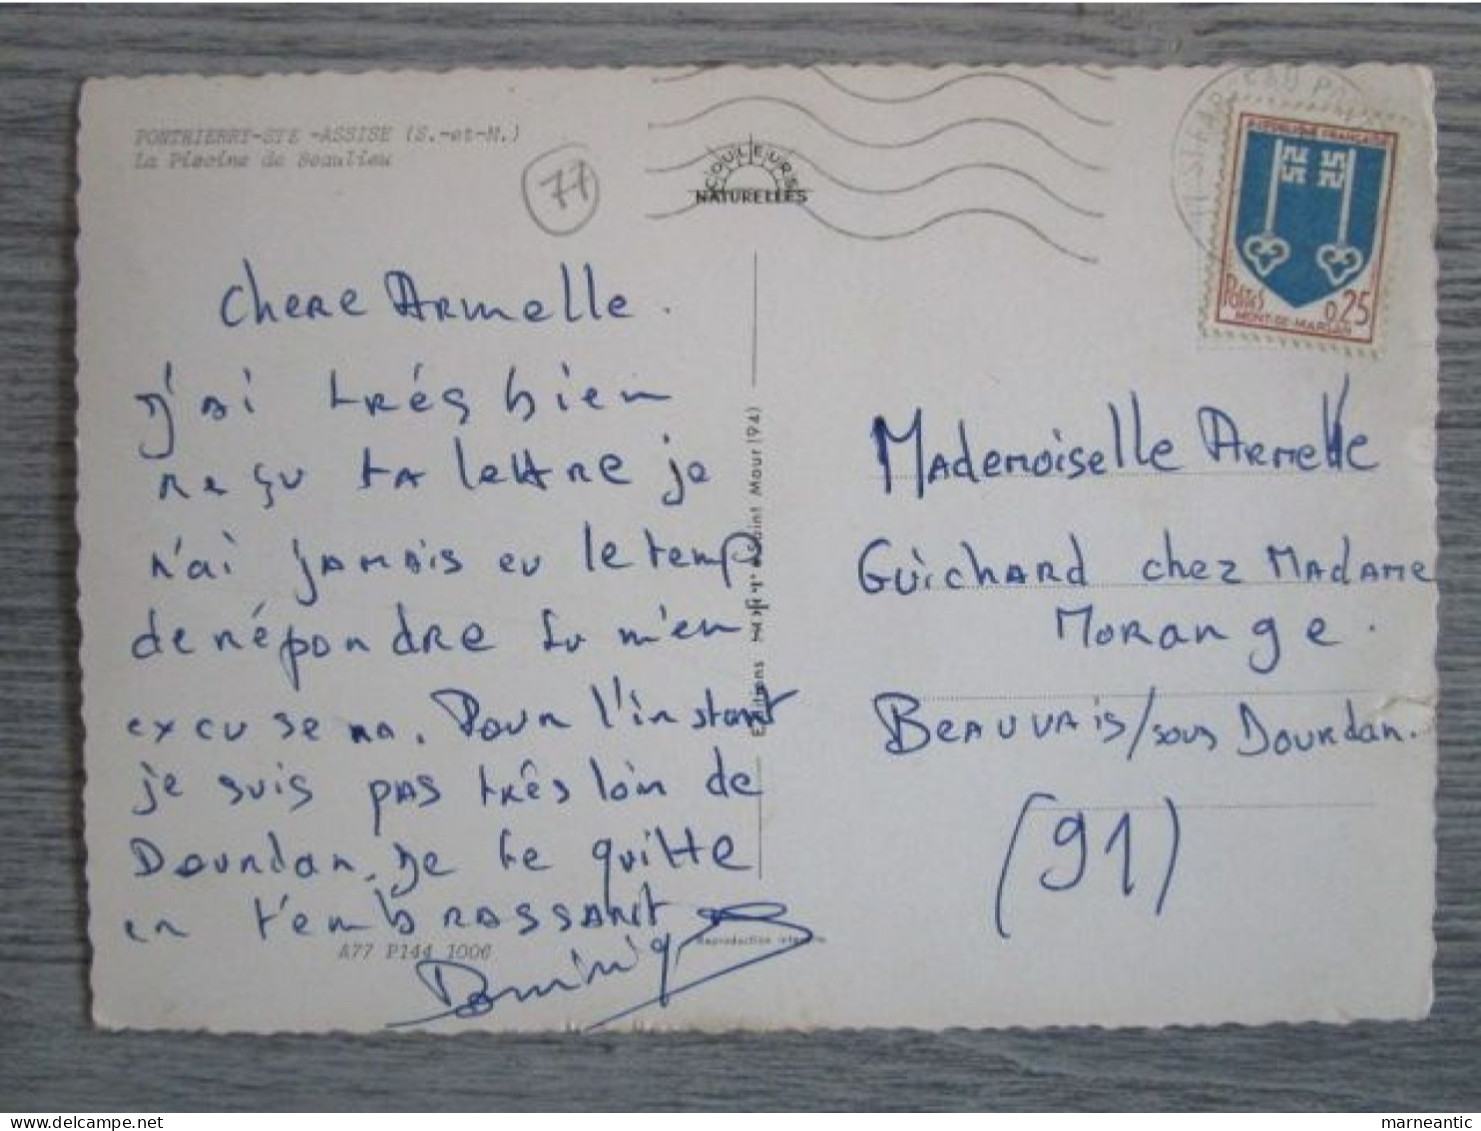 PONTHIERRY-STE -ASSISE (S.-et-M.)
La Piscine de Beaulieu
77
COULEURS
NATURELLES
REPUBLIQUE FRANCAISE
POSTES
0,25
MONT-DE-MARSAN
Chere Armelle.
j'ai trés bien
reçu ta lettre je
n'ai jamais eu le temp
de répondre tu m'en
excusera. Pour l'instant
je suis pas três loin de
Dourdan. Je te quitte
en t'embrassant
Dominiq
A77 P144 1006
Saint Maur (94)
Reproduction
Mademoiselle Armelle
Guichard chez Madame
Morange.
Beauvais/sous Dourdan.
(91)
marneantic